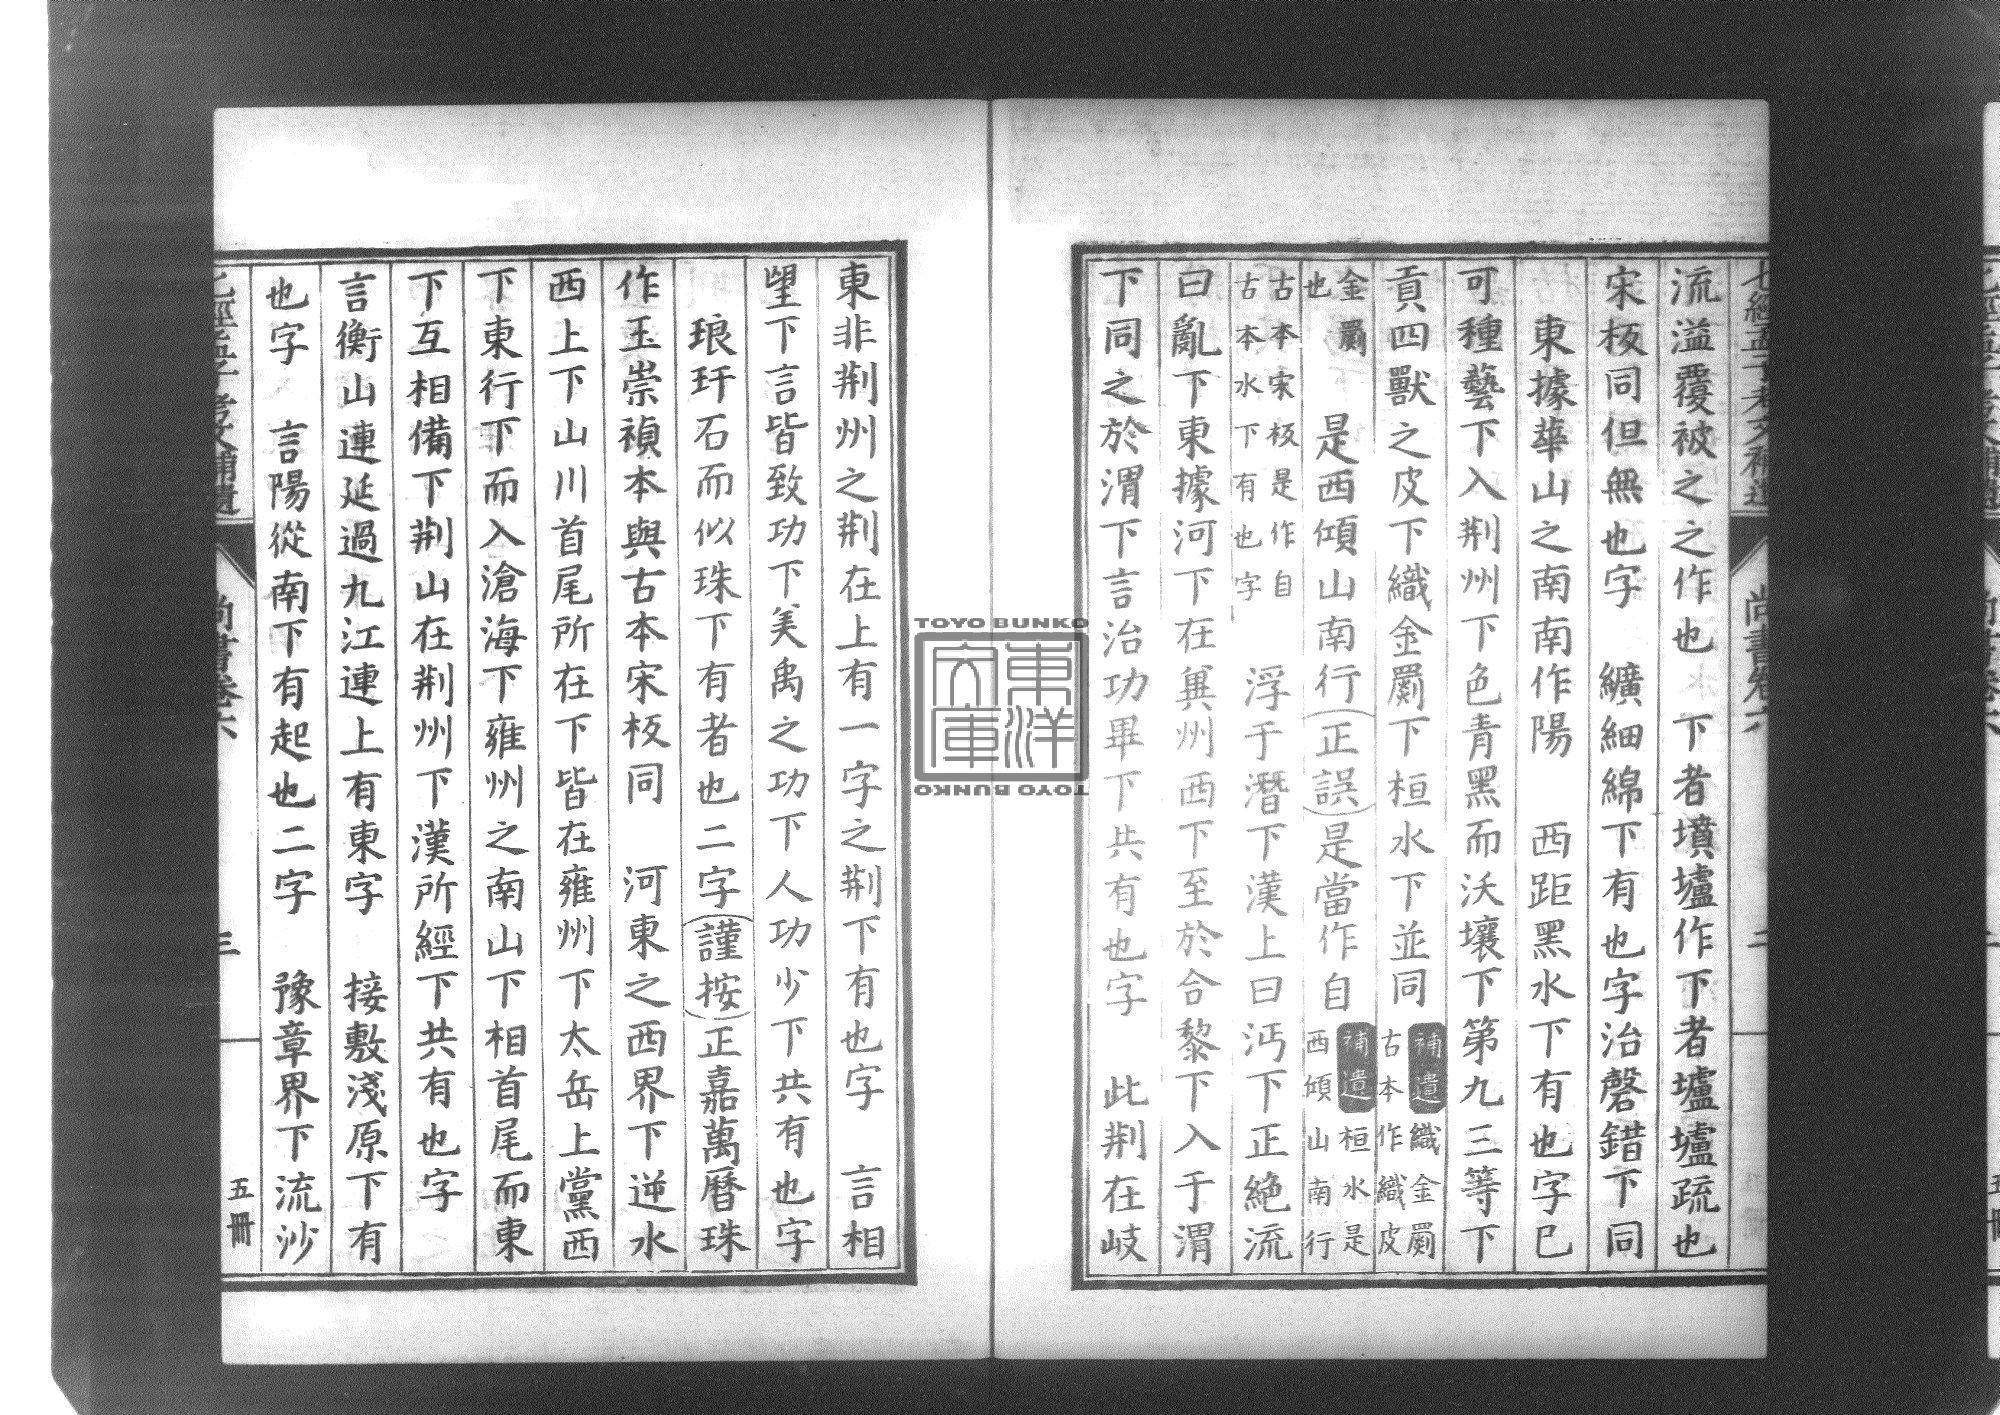 七經孟子考文補遺 尚書卷六 二
流溢覆被之之作也　下者墳壚作下者壚壚疏也
宋板同但無也字　纊細綿下有也字治磬錯下同
東據華山之南南作陽　西距黑水下有也字巳
可種藝下入荆州下色青黑而沃壤下第九三等下
貢四獸之皮下織金罽下桓水下並同補遺織金罽古本作織皮
金罽也　是西傾山南行正誤是當作自補遺桓水是西傾山南行
古本宋板是作自古本水下有也字　浮于潛下漢上曰沔下正絶流
曰亂下東據河下在兾州西下至於合黎下入于渭
下同之於渭下言治功畢下共有也字　此荆在岐
東非荆州之荆在上有一字之荆下有也字　言相
望下言皆致功下美禹之功下人功少下共有也字
琅玕石而似珠下有者也二字謹按正嘉萬曆珠
作玉崇禎本與古本宋板同　河東之西界下逆水
西上下山川首尾所在下皆在雍州下太岳上黨西
下東行下而入滄海下雍州之南山下相首尾而東
下互相備下荆山在荆州下漢所經下共有也字
言衡山連延過九江連上有東字　接敷淺原下有
也字　言陽從南下有起也二字　豫章界下流沙
七經孟子考文補遺 尚書卷六 三 五冊
TOYO BUNKO
東洋文庫
TOYO BUNKO